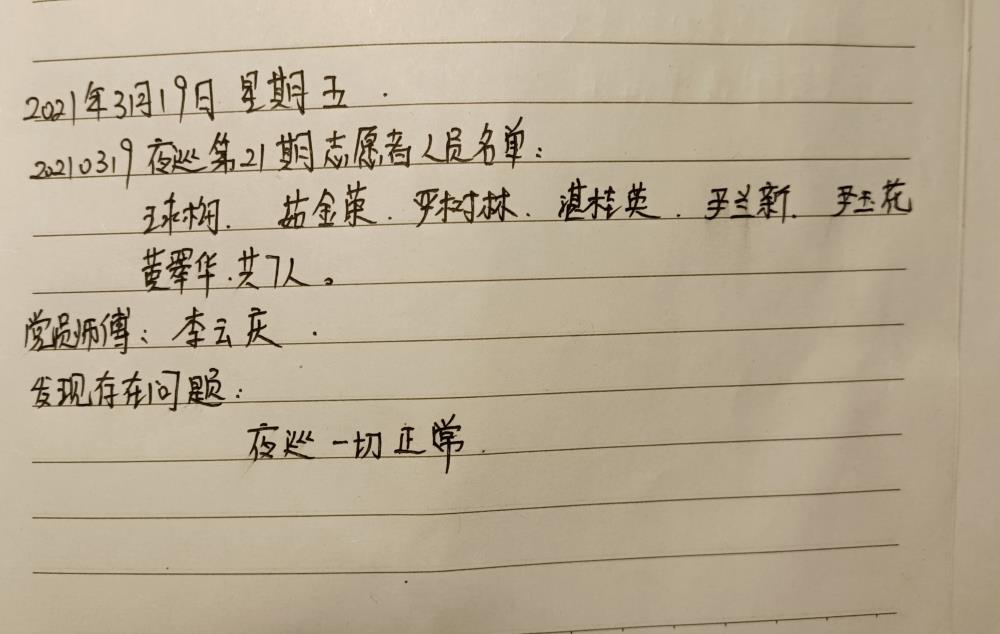 2021年3月19日 星期五.
20210319夜巡第21期志愿者人员名单:
茹金荣. 严树林. 湛桂英. 尹兰新. 尹玉花
黄翠华.共7人。
党员师傅: 李云庆.
发现存在问题:
夜巡一切正常.